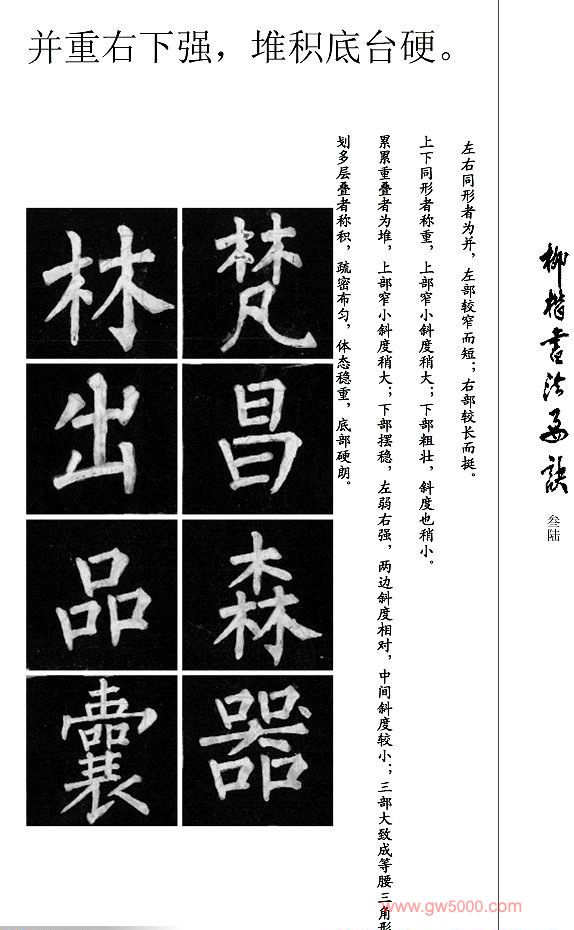 并重右下强，堆积底台硬。
左右同形者为并，左部较窄而短；右部较长而挺。
上下同形者称重，上部窄小斜度稍大；下部粗壮，斜度也稍小。
累累重叠者为堆，上部窄小斜度稍大；下部摆稳，左弱右强，两边斜度相对，中间斜度较小；三部大致成等腰三角形
划多层叠者称积，疏密布匀，体态稳重，底部硬朗。
梵
林
昌
出
森
品
器
囊
柳楷书法要诀
叁陆
www.gw5000.com